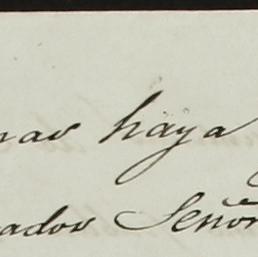 nar haya
ador Señor